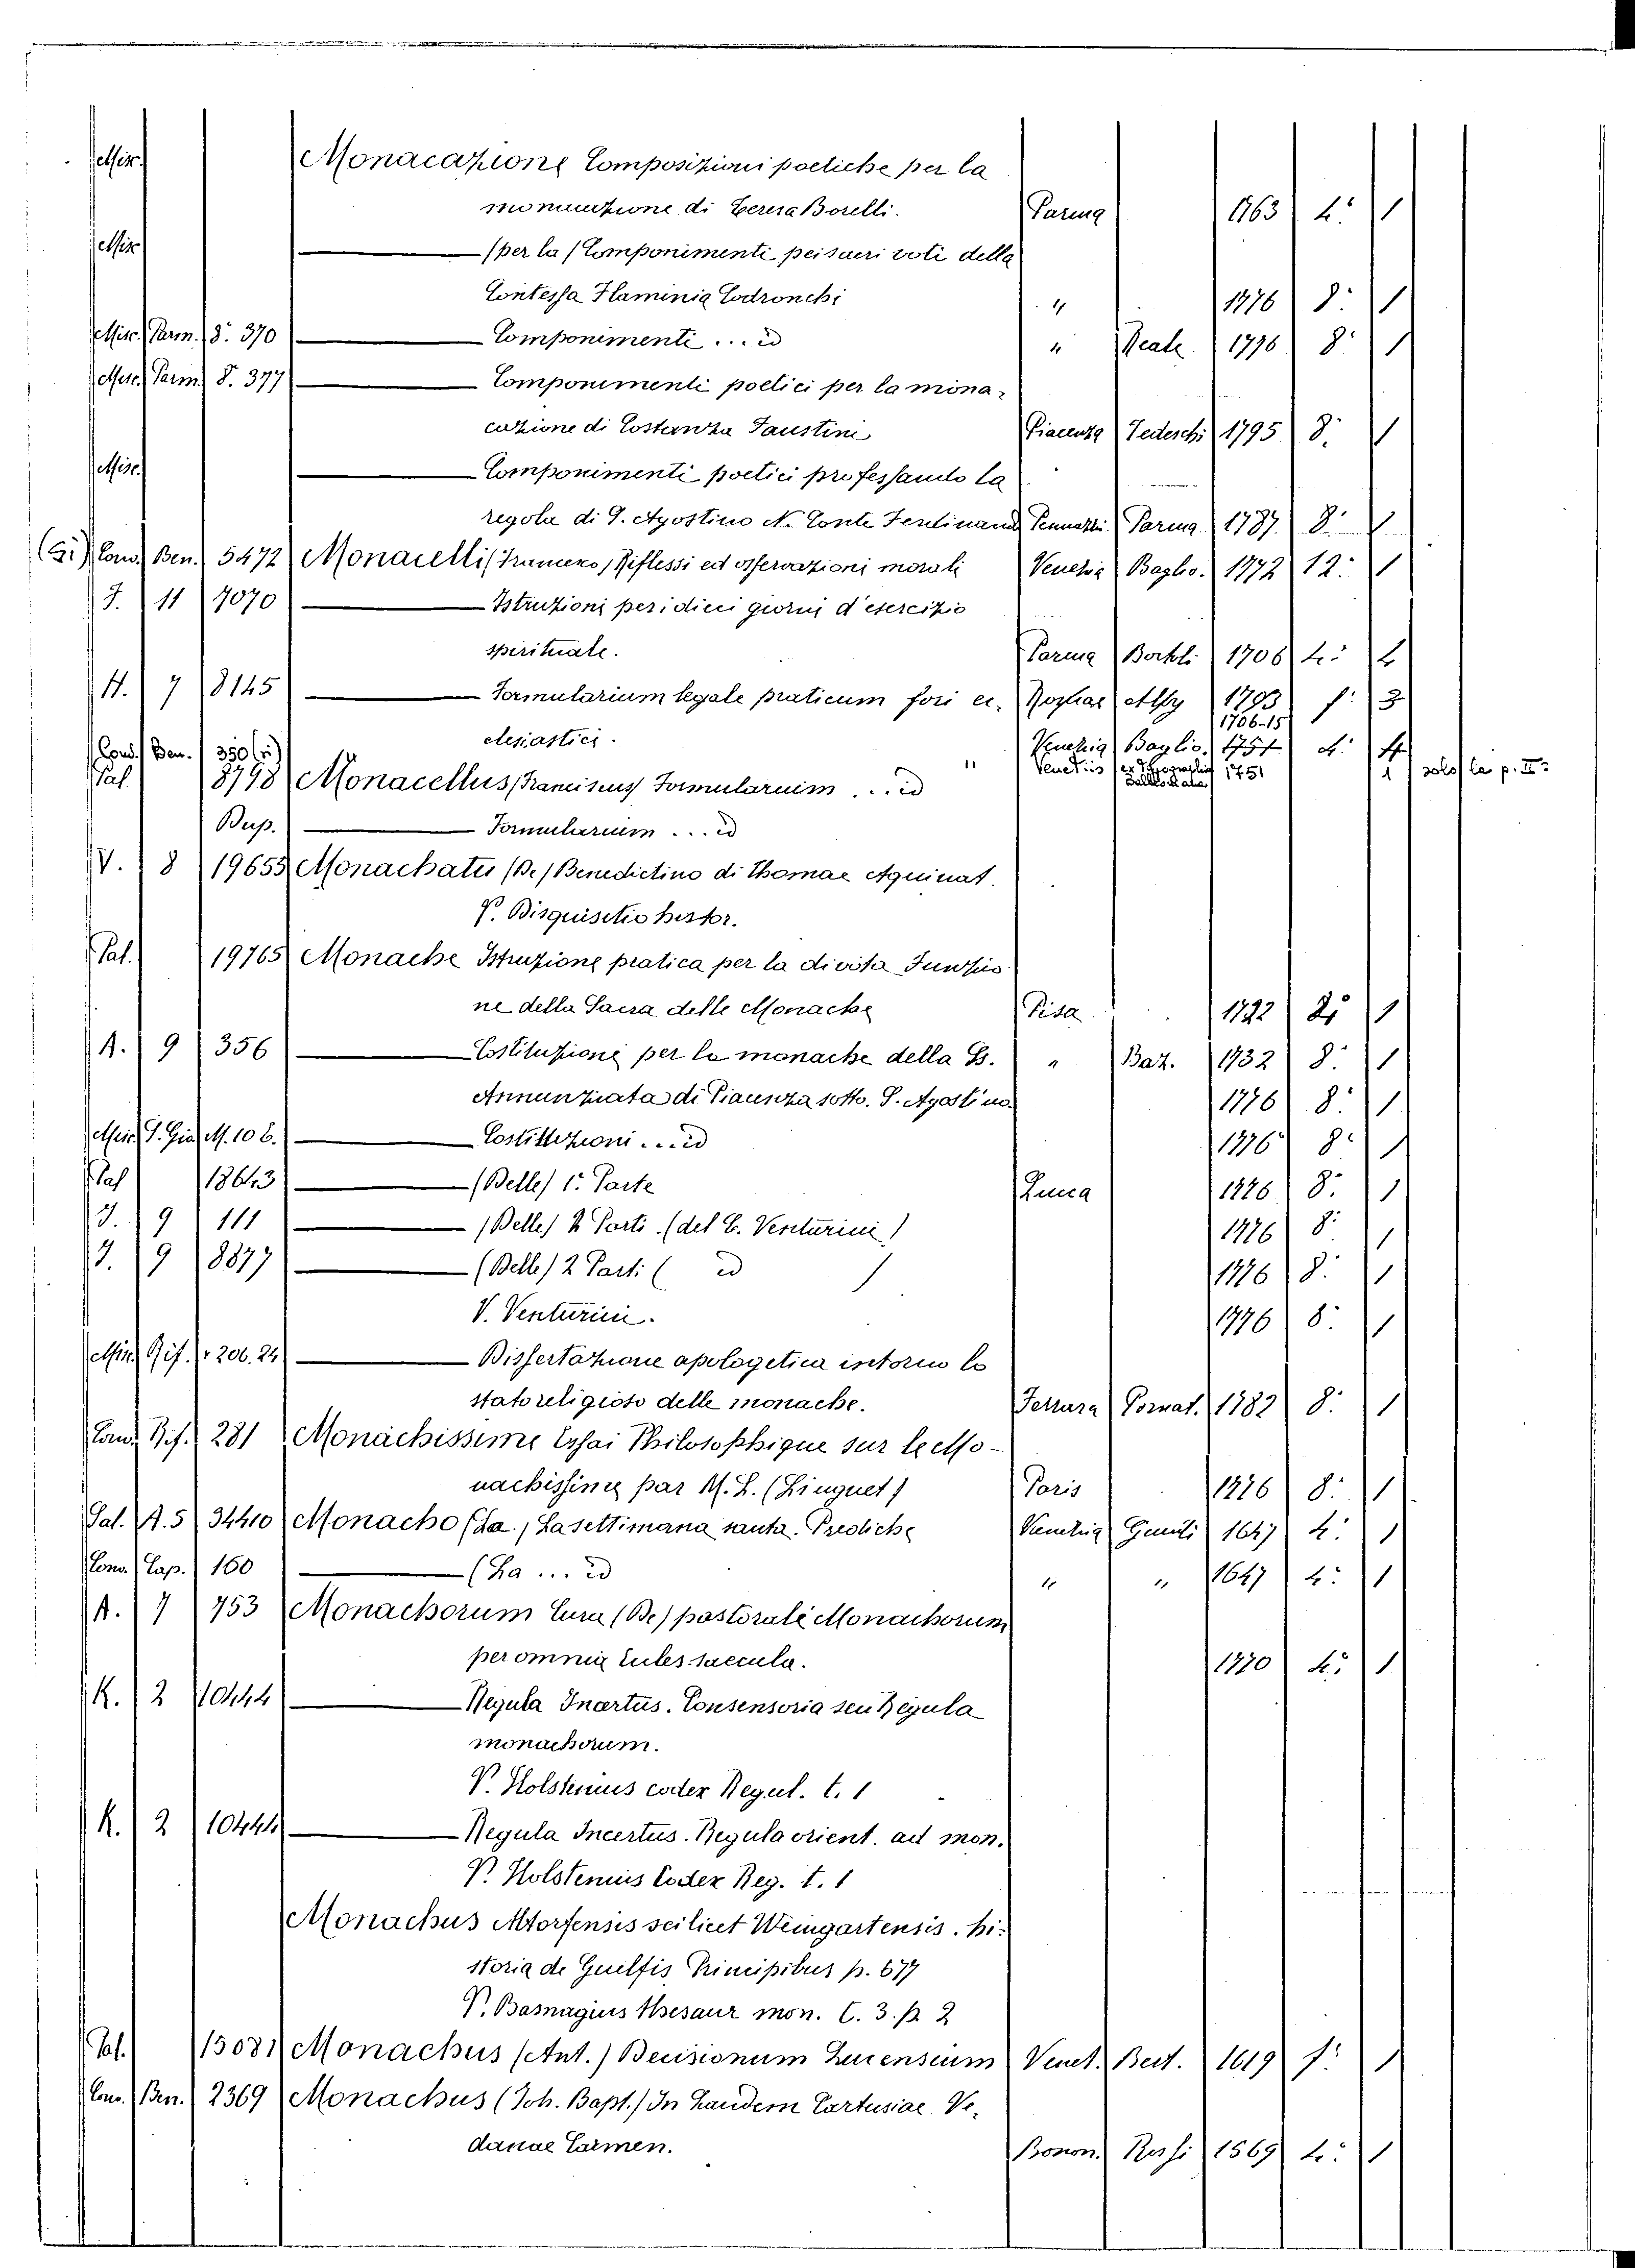 Misc. Monacazione Composizioni poetiche per la
monacazione di Teresa Borelli. Parma 1763 4° 1
Misc. (per la) Componimenti pei sacri voti della
Contessa Flaminia Codronchi " 1776 8° 1
Misc. Parm. 8° 370 Componimenti ... id " Reale 1776 8° 1
Misc. Parm. 8° 377 Componimenti poetici per la mona-
cazione di Costanza Faustini Piacenza Tedeschi 1795 8° 1
Misc. Componimenti poetici professando la
regola di S. Agostino N. Conte Ferdinand Pennazzi Parma 1787 8° 1
Conv. Ben. 5472 Monacelli (Francesco) Riflessi ed osservazioni morali Venezia Baglio. 1772 12° 1
11 7070 Istruzioni per i dieci giorni d'esercizio
spirituale. Parma 1706 4°
H. 7 8145 Formularium legale praticum fori ec-
clesiastici. 1706-15 3
Cond. Ben. 350 Venezia Baglio. 4°
Pal. 8798 Monacellus (Franciscus) Formularium ... id " Venetiis ex Typographia Balleoniana 1751 1 solo la p. II°
Dup. Formularium ... id
V. 8 19655 Monachatu (De) Benedictino di Thomae Aquinat.
V. Disquisitio histor.
Pal. 19765 Monache Istruzione pratica per la divota Funzio
ne della Sacra delle Monache Pisa 1722 1
A. 9 356 Costituzioni per le monache della SS. " Baz. 1732 8° 1
Annunziata di Piacenza sotto S. Agostino. 1776 8° 1
Misc. S. Gio. M. 10 Costituzioni ... id 1776 8° 1
Pal 18643 (Delle) 1° Parte Lucca 1776 8° 1
9 111 (Delle) 2 Parti (del C. Venturini) 1776 8° 1
9 8877 (Delle) 2 Parti ( id ) 1776 8° 1
V. Venturini. 1776 8° 1
Misc. Rif. 206.24 Dissertazione apologetica intorno lo
stato religioso delle monache. Ferrara Pomat. 1782 8° 1
Conv. Rif. 281 Monachissime Essai Philosophique sur le Mo-
nachissime par M. L. (Linguet) Paris 1776 8° 1
Pal. A.5 34410 Monacho (La.) La settimana santa. Prediche Venezia 1647 4° 1
Conv. Cap. 160 (La ... id " " 1647 4° 1
A. 7 753 Monachorum Cura (De) pastorali Monachorum
per omnia saecula. 1770 4° 1
K. 2 10444 Regula Incertus. Consensoria seu Regula
monachorum.
V. Holstenius codex Regul. t. 1
K. 2 10444 Regula Incertus. Regula orient. ad mon.
V. Holstenius Codex Reg. t. 1
Monachus Altorfensis scilicet Weingartensis. hi-
storia de Guelfis Principibus p. 577
V. Basnagius thesaur mon. t. 3. p. 2
Pal. 15081 Monachus (Ant.) Decisionum Lucensium Venet. Bert. 1619 f° 1
Conv. Ben. 2369 Monachus (Joh. Bapt.) In Laudem Cartusiae Ve-
danae Carmen. Bonon. Rossi 1569 4° 1